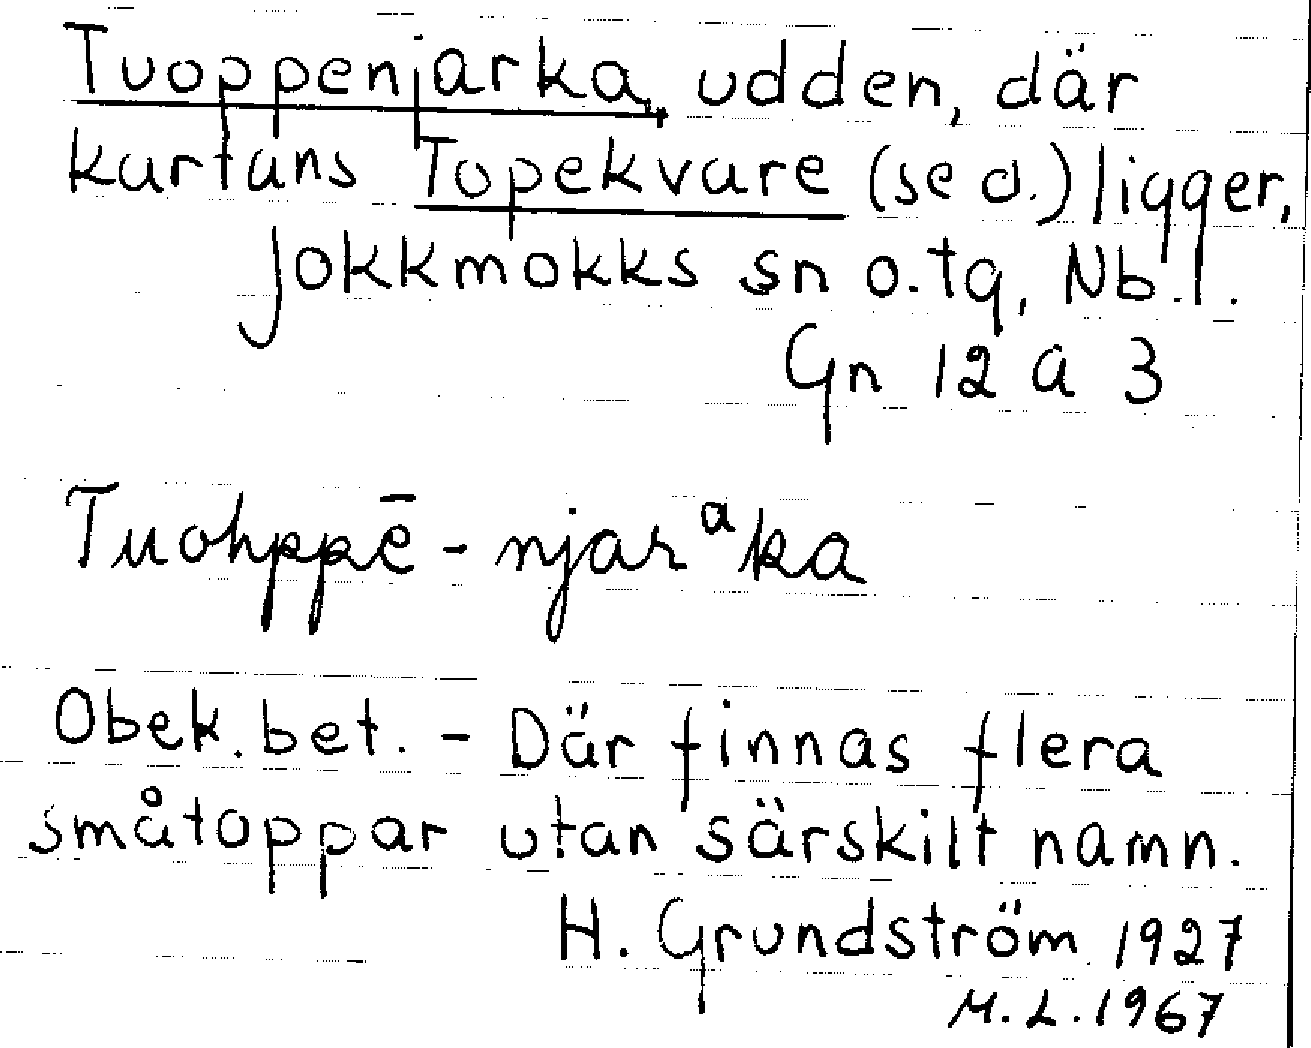 Tuoppenjarka, udden, där
kartans Topekvare (se d.) ligger,
Jokkmokks sn o.tg, Nb.l.
Gn 12 a 3
Tuohppē - njarᵃka
Obek. bet. - Där finnas flera
småtoppar utan särskilt namn.
H. Grundström 1927
M.L.1967